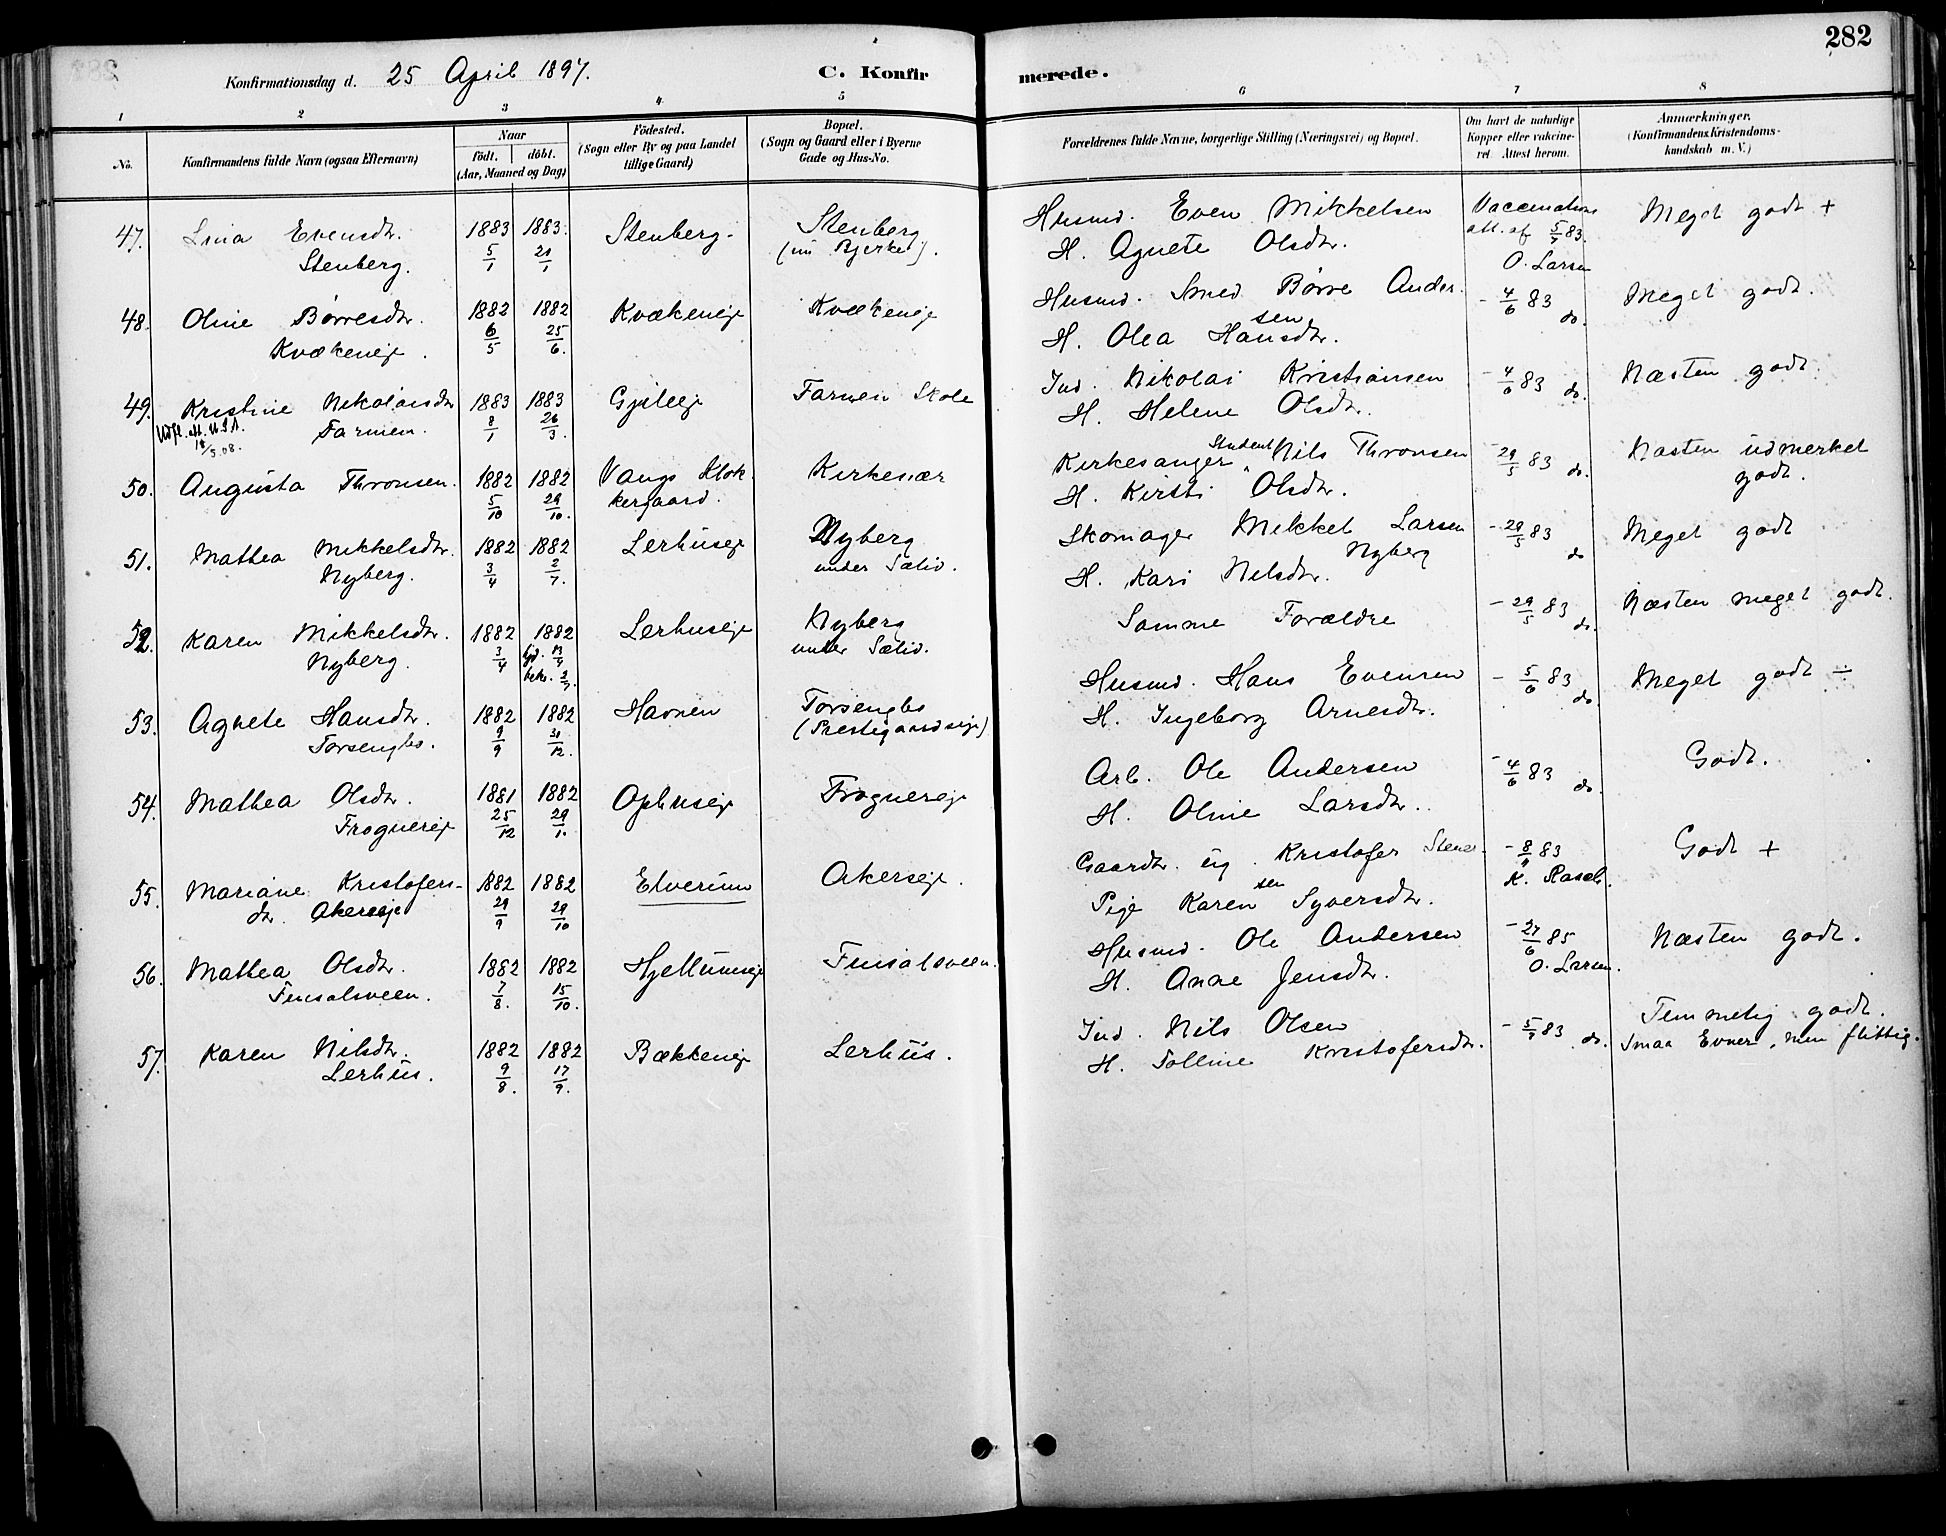 282
Konfirmationsdag d. 25 April 1897.
C. Konfirmerede.
1 2 3 4 5 6 7 8
No.
Konfirmandens fulde Navn (ogsaa Efternavn)
Naar
födt. döbt.
(Aar, Maaned og Dag)
Födested.
(Sogn eller By og paa Landet
tillige Gaard)
Bopæl.
(Sogn og Gaard eller i Byerne
Gade og Hus-No.
Forældrenes fulde Navne, borgerlige Stilling (Næringsvei) og Bopæl.
Om havt de naturlige
Kopper eller vakcine-
ret. Attest herom.
Anmærkninger.
(Konfirmandens Kristendoms-
kundskab m. V.)
47. Lina Evensdtr. Stenberg. 1883 5/1 1883. 21/1 Stenberg. Stenberg (nu Bjerke). Husmd. Even Mikkelsen H. Agnete Olsdtr. Vaccinations att. af 5/7 83. O. Larsen Meget godt +
48. Oline Børresdtr. Kvækeneje. 1882 6/5 1882 25/6. Kvækeneje Kvækeneje Husmd. Smed Børre Andersen H. Olea Hansdtr. - 4/6 83 do. Meget godt.
49. Kristine Nikolaisdtr Farmen. 1883 8/1 1883 26/3. Farmen Skole Ind. Nikolai Kristiansen H. Helene Olsdtr. - 4/6 83 do. Næsten godt
Udfl. att. U.S.A. 18/5.08.
50. Augusta Thronsen. 1882 5/10 1882 29/10. Vangs Klokkergaard. Kirkesær Kirkesanger, Student Nils Thronsen H. Kirsti Olsdtr. - 29/5 83 do. Næsten udmerket godt.
51. Mathea Mikkelsdtr. Nyberg. 1882 3/4 1882 2/7. Lerhuseje Nyberg under Sælid. Skomager Mikkel Larsen Nyberg H. Kari Nilsdtr. - 29/5 83 do Meget godt
52. Karen Mikkelsdtr. Nyberg. 1882 3/4 1882 hjd. 13/4 bekr. 2/7. Lerhuseje Nyberg under Sælid. Samme Forældre - 29/5 83 do. Næsten meget godt.
53. Agnete Hansdtr. Torsengbs. 1882 9/9 1882 31/12. Havnen Torsengbs (Prestegaardseje) Husmd. Hans Evensen H. Ingeborg Arnesdtr. - 5/6 83 do. Meget godt ÷
54. Mathea Olsdtr. Frognereje 1881 25/12 1882 29/1. Ophuseje Frognereje Arb. Ole Andersen H. Oline Larsdtr. - 4/6 83 do. Godt.
55. Mariane Kristofersdtr. Akerseje 1882 29/9 1882 29/10 Elverum Akerseje. Gaardbr. ug. Kristofer Stensen Pige Karen Syversdtr. - 8/9 83 Godt +
56. Mathea Olsdtr. Finsalsveen. 1882 7/8. 1882 15/10. Hjellumseje Finsalsveen. Husmd. Ole Andersen H. Anne Jensdtr. - 27/6 85 O. Larsen. Næsten godt.
57. Karen Nilsdtr. Lerhus. 1882 9/8. 1882 17/9. Bækkeneje Lerhus. Ind. Nils Olsen H. Tolline Kristofersdtr. - 5/7 83 do. Temmelig godt. Smaa Evner, men flittig.